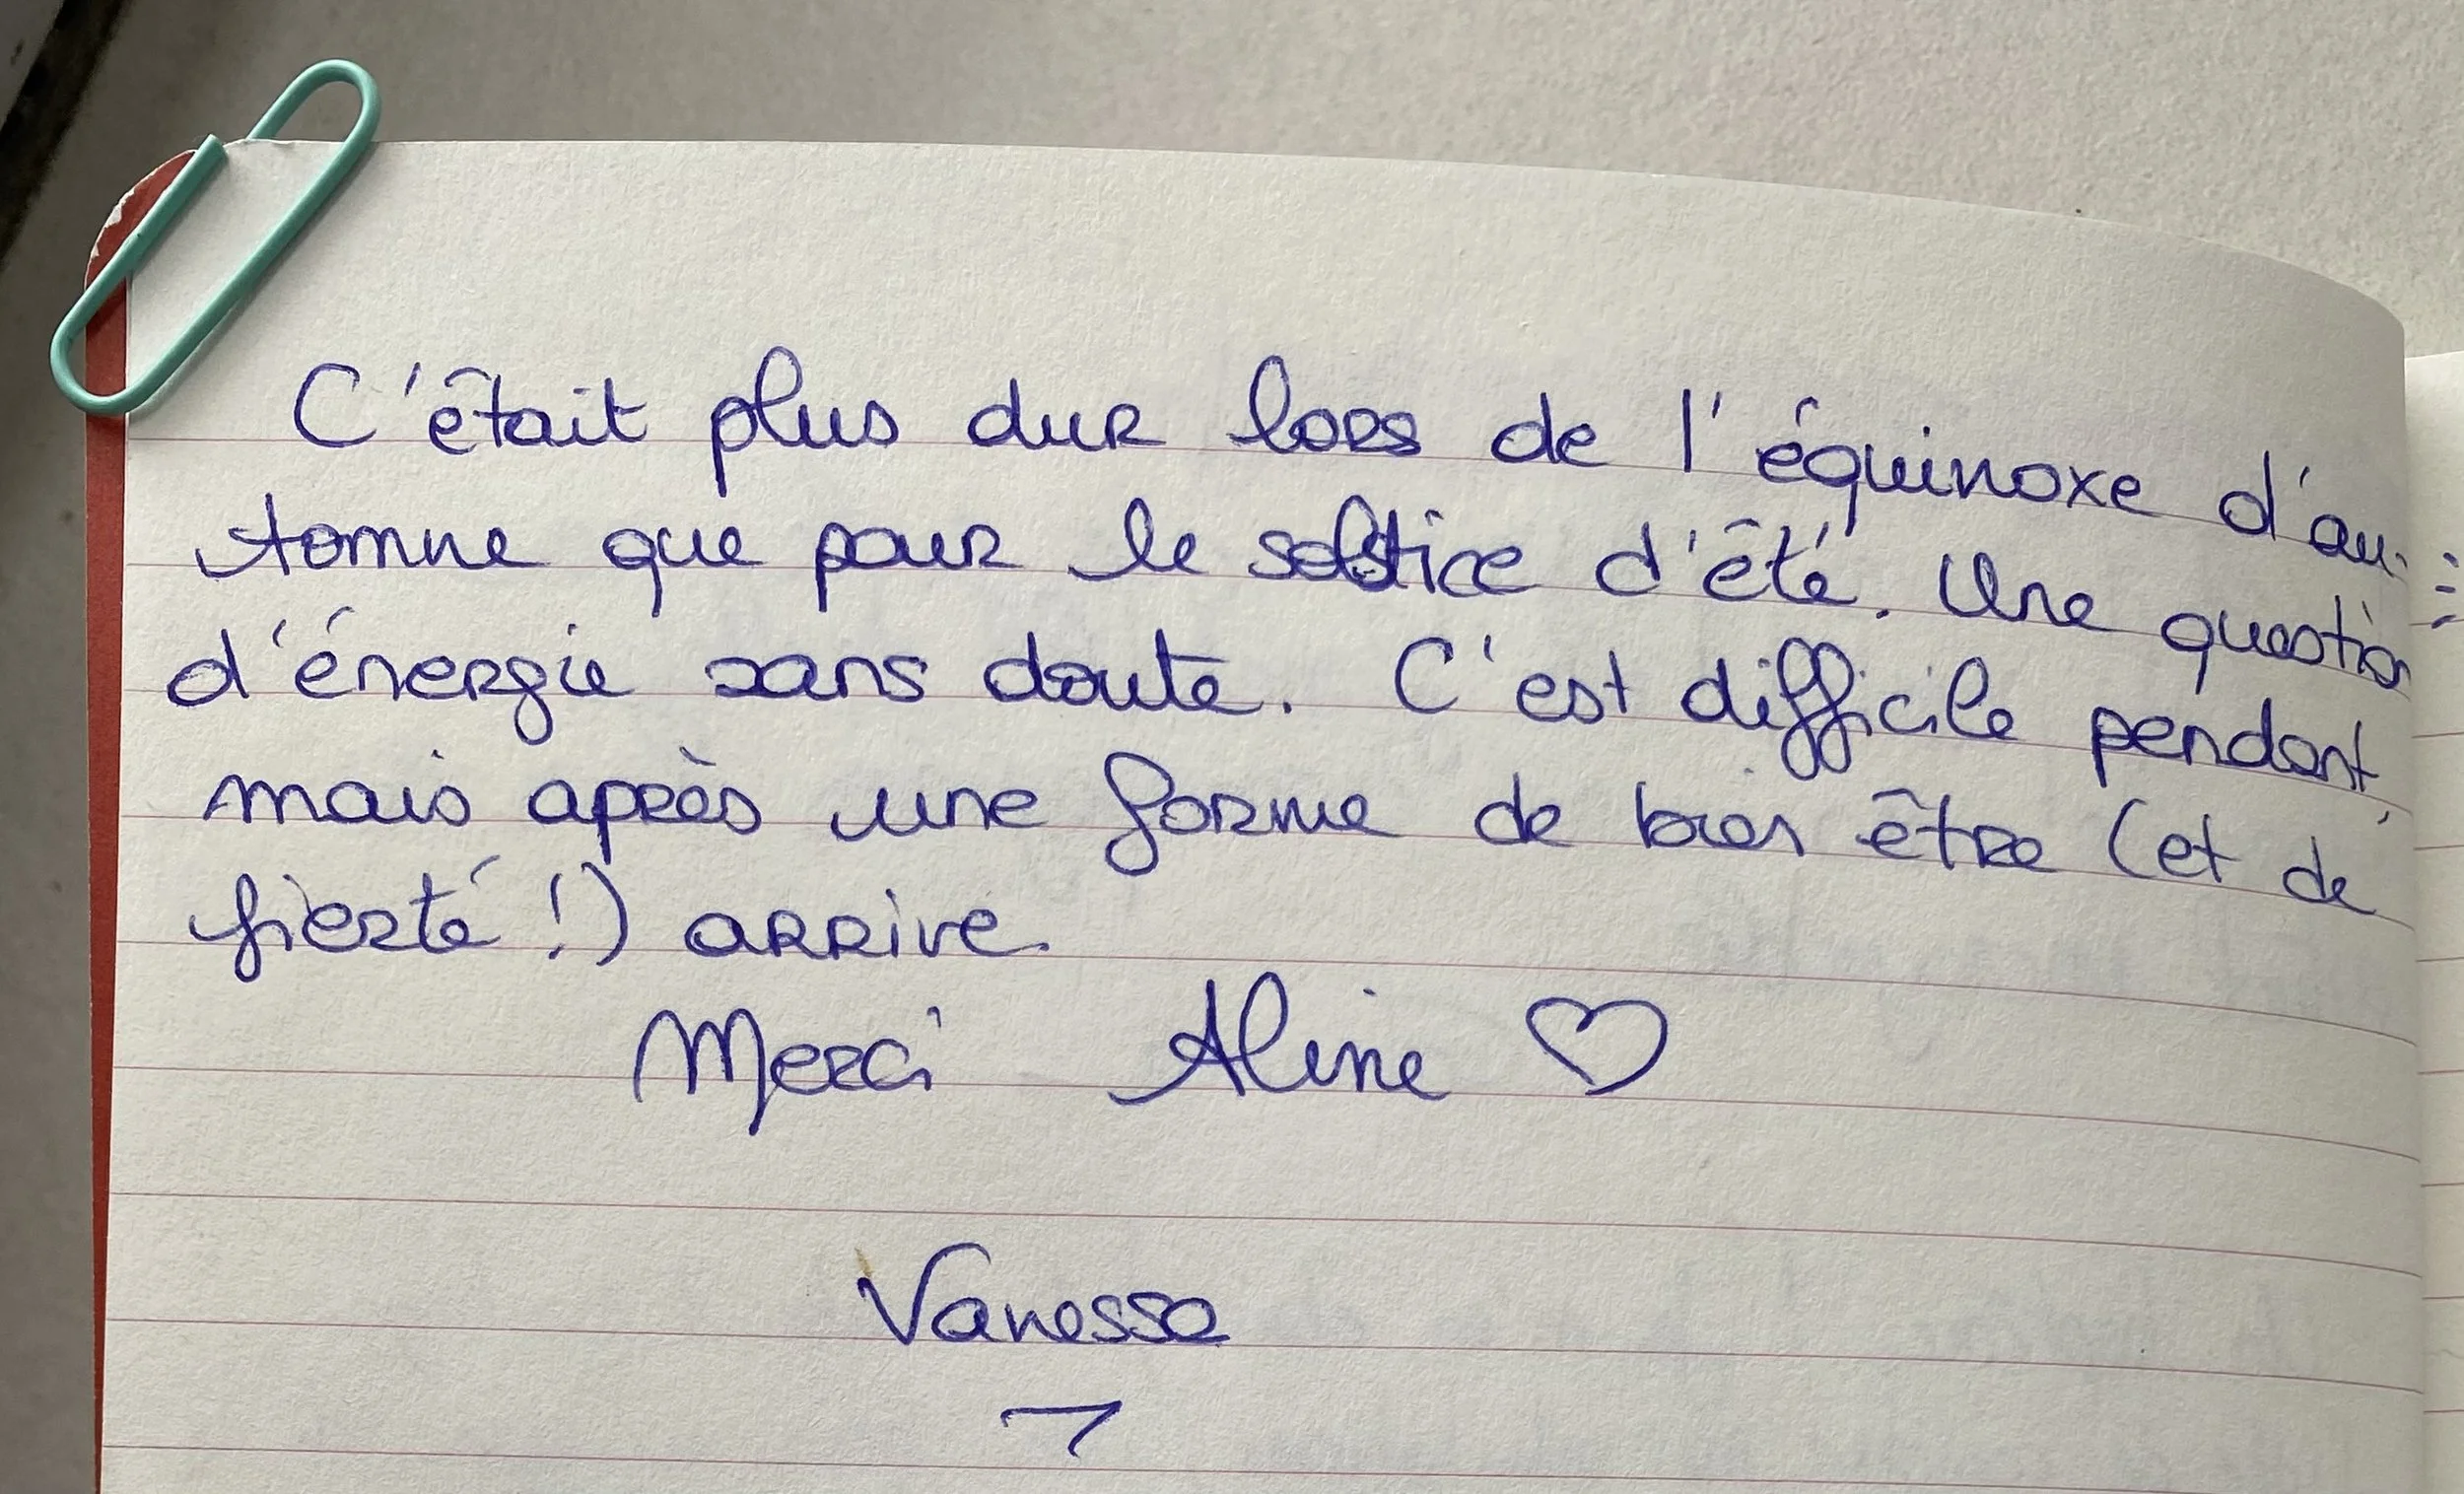 C'était plus dur lors de l'équinoxe d'au-
tomne que pour le solstice d'été. Une question
d'énergie sans doute. C'est difficile pendant,
mais après une forme de bien être (et de
fierté !) arrive.
Merci Aline ♡
Vanessa